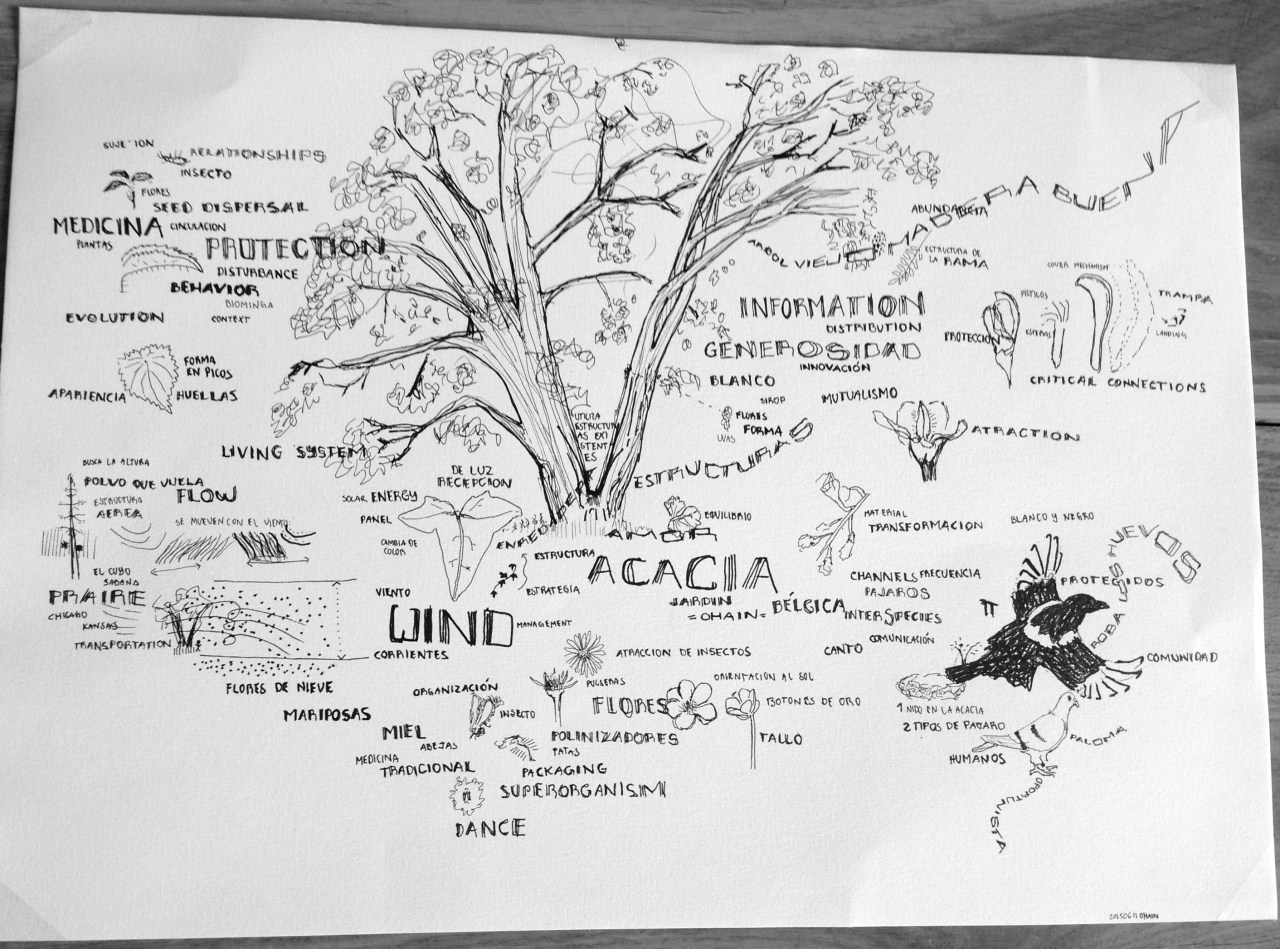 RELATIONSHIPS
INSECTO
FLORES
SEED DISPERSAL
MEDICINA
CIRCULACION
PLANTAS
PROTECTION
DISTURBANCE
BEHAVIOR
BIOMINGA
EVOLUTION
CONTEXT
FORMA
EN PICOS
APARIENCIA
HUELLAS
LIVING SYSTEM
BUSCA LA ALTURA
POLVO QUE VUELA
ESTRUCTURA
AEREA
FLOW
SE MUEVEN CON EL VIENTO
EL CUBO
SABANA
PRAIRIE
CHICAGO
KANSAS
TRANSPORTATION
FLORES DE NIEVE
MARIPOSAS
DE LUZ
RECEPCION
SOLAR ENERGY
PANEL
CAMBIA DE
COLOR
ESTRUCTURA
ESTRATEGIA
VIENTO
WIND
MANAGEMENT
CORRIENTES
UTILIZA
ESTRUCTUR
AS EXI
STENT
ES
ARBOL VIEJO MADERA BUENA
ABUNDANCIA
ESTRUCTURA DE
LA RAMA
INFORMATION
DISTRIBUTION
GENEROSIDAD
INNOVACIÓN
BLANCO
SIROP
MUTUALISMO
FLORES
FORMA
UVAS
ESTRUCTURAS
COVER MECHANISM
PISTILOS
TRAMPA
LANDING
PROTECCION
CRITICAL CONNECTIONS
ATRACTION
EQUILIBRIO
AMOR
ACACIA
JARDIN
=OHAIN=
BÉLGICA
MATERIAL
TRANSFORMACION
BLANCO Y NEGRO
CHANNELS
FRECUENCIA
PAJAROS
INTERSPECIES
COMUNICACIÓN
CANTO
PROTEGIDOS
ROBA LOS HUEVOS
COMUNIDAD
1 NIDO EN LA ACACIA
2 TIPOS DE PAJARO
HUMANOS
PALOMA
OPORTUNISTA
ATRACCION DE INSECTOS
ORIENTACION AL SOL
ORGANIZACIÓN
INSECTO
FLORES
BOTONES DE ORO
TALLO
MIEL
ABEJAS
POLINIZADORES
PATAS
MEDICINA
TRADICIONAL
PACKAGING
SUPERORGANISM
DANCE